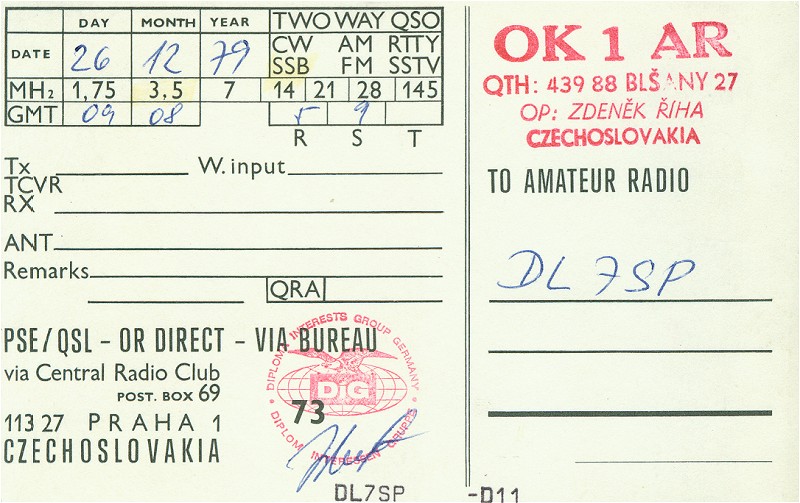 DAY MONTH YEAR TWO WAY QSO
DATE 26 12 79 CW AM RTTY
SSB FM SSTV
MHz 1,75 3,5 7 14 21 28 145
GMT 09 08 5 9
R S T
Tx W. input
TCVR
RX
ANT
Remarks
QRA
PSE/QSL - OR DIRECT - VIA BUREAU
via Central Radio Club
POST. BOX 69
113 27 PRAHA 1
CZECHOSLOVAKIA
DIPLOM INTERESTS GROUP GERMANY
DIG
73
DIPLOM INTERESSEN GRUPPE
OK 1 AR
QTH: 439 88 BLŠANY 27
OP: ZDENĚK ŘÍHA
CZECHOSLOVAKIA
TO AMATEUR RADIO
DL7SP
DL7SP -D11